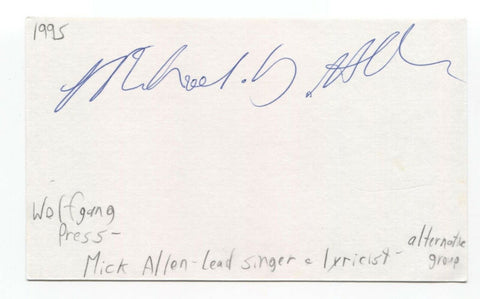 1995
Michael. G. Allen
Wolfgang
Press-
Mick Allen-Lead singer & lyricist-
alternative
group